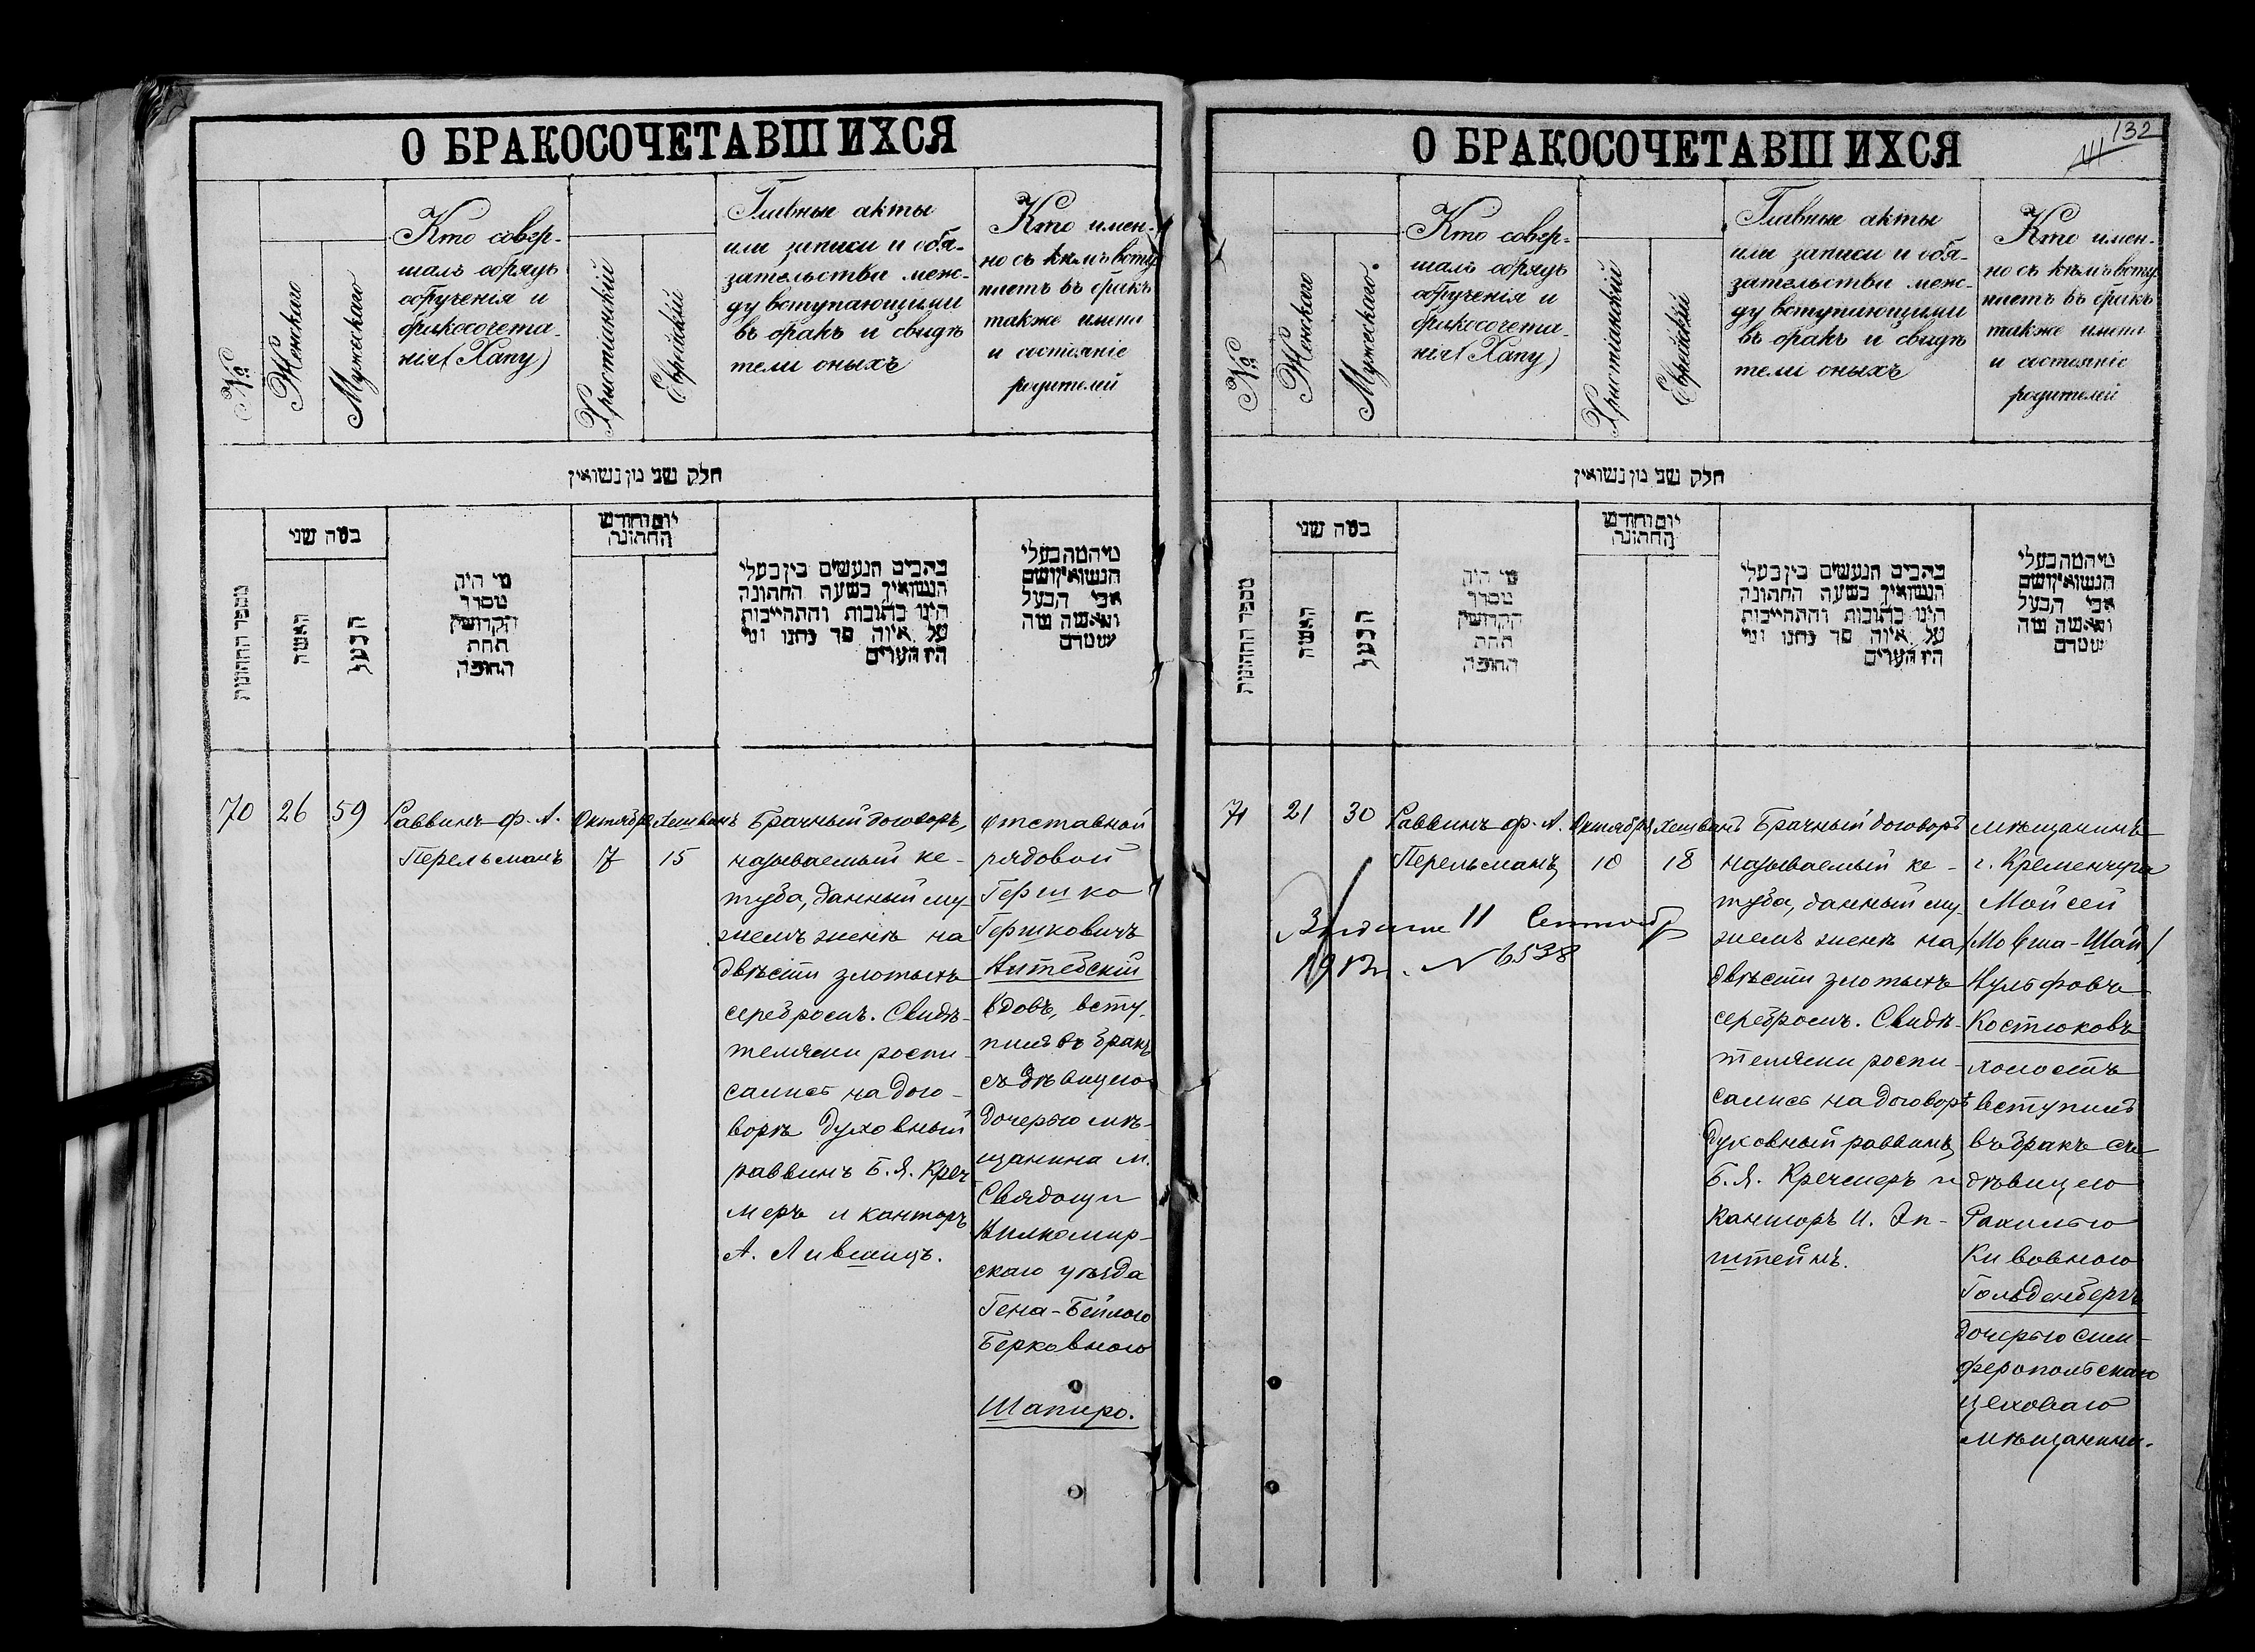 О БРАКОСОЧЕТАВШИХСЯ
№
Женскаго
Мужескаго
Кто совер-
шалъ обрядъ
обрученія и
бракосочета-
нія (Хапу)
Христіанскій
Еврейскій
Главные акты
или записи и обя-
зательства меж-
ду вступающими
въ бракъ и свидѣ
тели оныхъ
Кто имен-
но съ кѣмъ всту
паетъ въ бракъ
также имена
и состояніе
родителей
חלק שני מן נשואין
מספר החתונות
במה שני
האשה
הבעל
מי היה
מסדר
הקדושין
תחת
החופה
יום וחודש
החתונה
כתבים הנעשים בין בעלי
הנשואין בשעה החתונה
היינו כתובות והתחייבות
על איזה סך נתנו ומי
היו העדים
מי המה בעלי
הנשואין ושם
אבי הבעל
והאשה מה
שמדם
70
26
59
Раввинъ ф. А.
Перельманъ
Октября
7
Хешванъ
15
Брачный договоръ,
называемый ке-
туба, данный му-
жемъ женѣ на
двѣсти злотыхъ
серебромъ. Свидѣ-
телями роспи-
сались на дого-
ворѣ духовный
раввинъ Б. Я. Креч
меръ и канторъ
А. Лившицъ.
Отставной
рядовой
Гершко
Гершковичъ
Витебскій
вдовъ, всту-
пилъ въ бракъ
съ дѣвицею
дочерью мѣ-
щанина м.
Свядощи
Вилкомир-
скаго уѣзда
Гена-Бейлою
Берковною
Шапиро.
О БРАКОСОЧЕТАВШИХСЯ
132
111
№
Женскаго
Мужескаго.
Кто совер-
шалъ обрядъ
обрученія и
бракосочета-
нія (Хапу)
Христіанскій
Еврейскій
Главные акты
или записи и обя-
зательства меж-
ду вступающими
въ бракъ и свидѣ
тели оныхъ
Кто имен-
но съ кѣмъ всту
паетъ въ бракъ
также имена
и состояніе
родителей
חלק שני מן נשואין
מספר החתונות
במה שני
האשה
הבעל
מי היה
מסדר
הקדושין
תחת
החופה
יום וחודש
החתונה
כתבים הנעשים בין בעלי
הנשואין בשעה החתונה
היינו כתובות והתחייבות
על איזה סך נתנו ומי
היו העדים
מי המה בעלי
הנשואין ושם
אבי הבעל
והאשה מה
שמדם
71
21
30
Раввинъ ф. А.
Перельманъ
Октября
10
Хешванъ
18
11 Сентябр
1912 г. № 6538
Брачный договоръ
называемый ке-
туба, данный му-
жемъ женѣ на
двѣсти злотыхъ
серебромъ. Свидѣ-
телями роспи-
сались на договорѣ
духовный раввинъ
Б. Я. Кречмеръ и
Канторъ И. Эп-
штейнъ.
мѣщанинъ
г. Кременчуга
Мойсей
/Мовша-Шай/
Вульфовъ
Костюковъ
холостъ
вступилъ
въ бракъ съ
дѣвицею
Рахилью
Кивовною
Гольденбергъ
дочерью сим-
феропольскаго
цеховаго
мѣщанина.